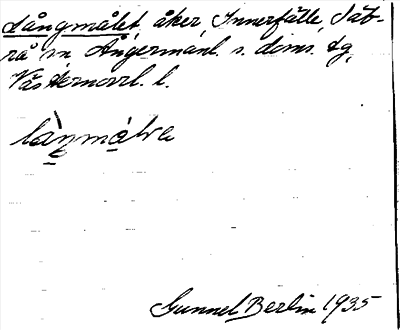 Långmålet, åker, Innerfälle, Säb-
rå sn Ångermanl. s. doms. lg,
Västernorrl. l.
Gunnel Berlin 1935